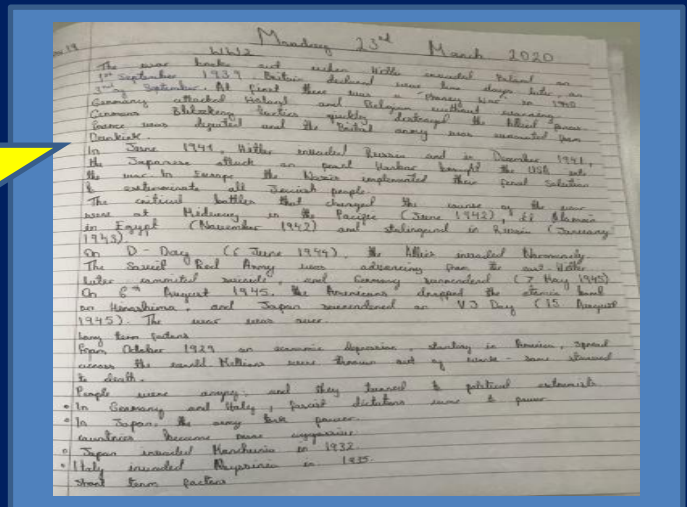 Monday 23rd March 2020
WW2
The war broke out when Hitler invaded Poland on
1st September 1939. Britain declared war two days later, on
3rd of September. At first there was a "Phoney War" in 1940
Germany attacked Holland and Belgium without warning
Germans Blitzkrieg tactics quickly destroyed the Allied forces
France was defeated and the British army was evacuated from
Dunkirk.
In June 1941, Hitler invaded Russia and in December 1941,
the Japanese attack on pearl Harbor brought the USA into
the war. In Europe the Nazis implemented their final Solution
to exterminate all Jewish people.
The critical battles that changed the course of the war
were at Midway in the Pacific (June 1942), El Alamein
in Egypt (November 1942) and stalingrad in Russia (January
1943).
On D-Day (6 June 1944), the Allies invaded Normandy
The Soviet Red Army was advancing from the east. Hitler
later committed suicide, and Germany surrendered (7 May 1945)
On 6th August 1945, the Americans dropped the atomic bomb
on Hiroshima, and Japan surrendered on VJ Day (15 August
1945). The war was over.
Long term factors
From October 1929 an economic depression, starting in America, spread
across the world Millions were thrown out of work - some starved
to death.
People were angry, and they turned to political extremists
• In Germany and Italy, fascist dictators came to power
• In Japan, the army took power.
countries became more aggressive
• Japan invaded Manchuria in 1932.
• Italy invaded Abyssinia in 1935.
short term factors